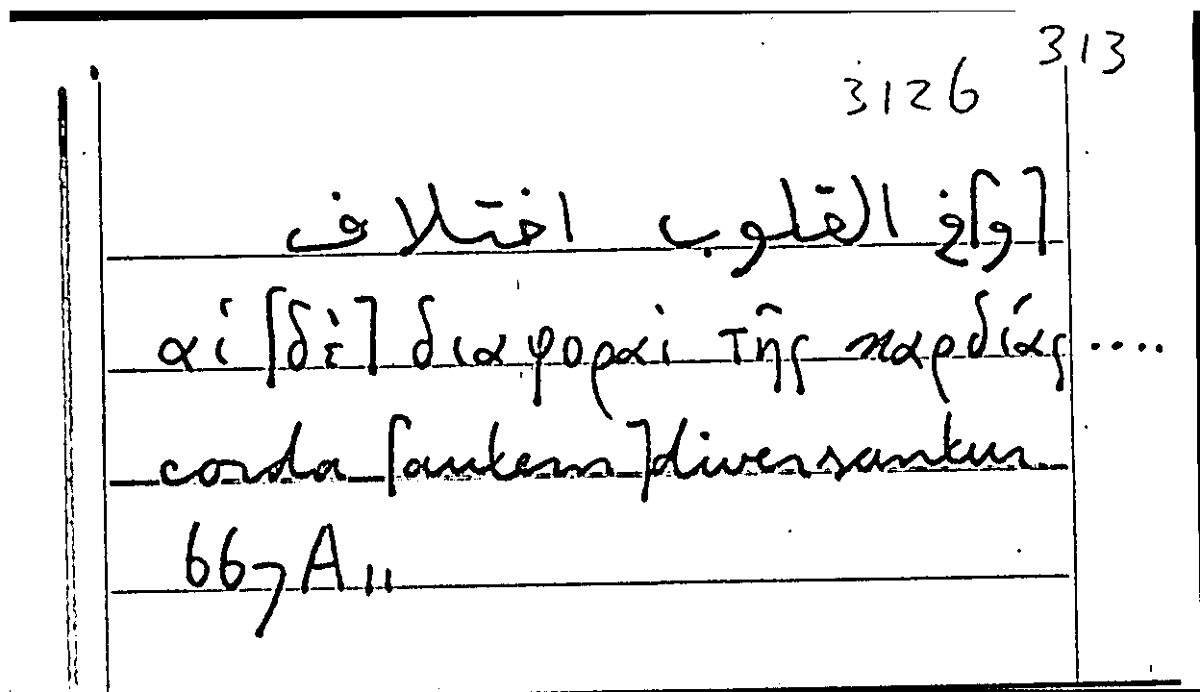 313
3126
[و]في القلوب اختلاف
αἱ [δὲ] διαφοραὶ τῆς καρδίας ....
corda [autem] diversantur
667A11